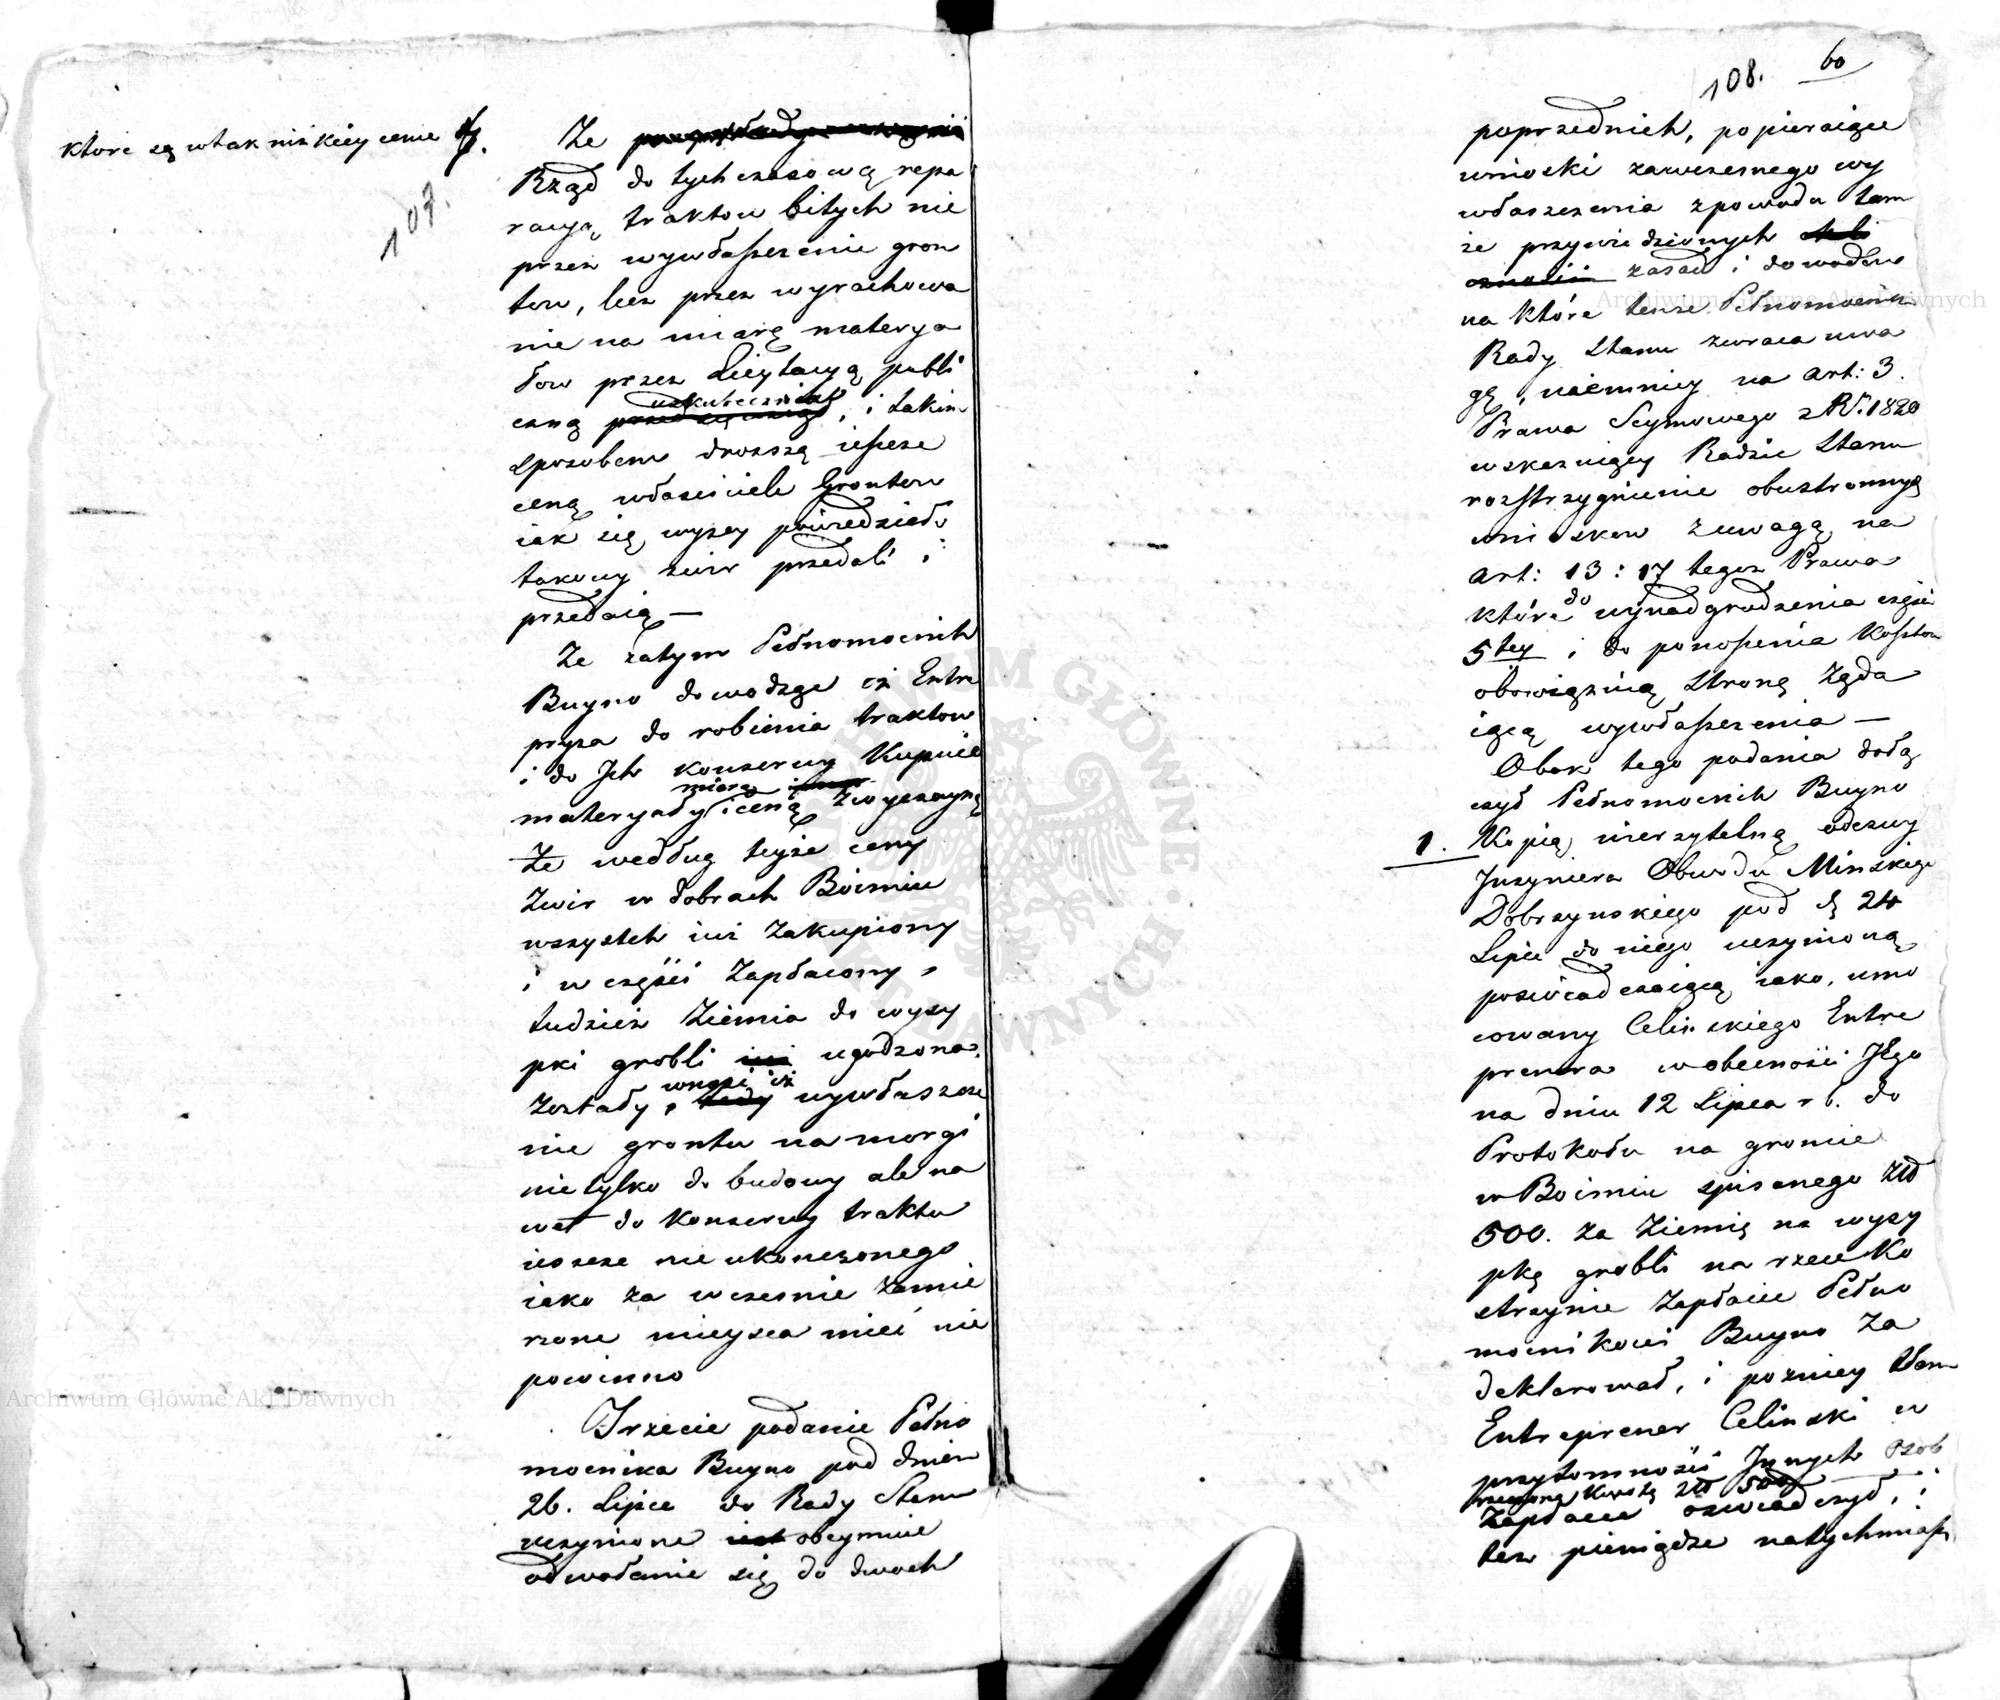 ktore są wtak nizkiey cenie
107.
Ze
Rząd do tychczasową repa
racyą traktow bitych nie
przez wywłaszczenie gron
tow, lecz przez wyrachowa
nie na miarę materya
łow przez Licytacyą publi
uskutecznia
czną, i takim
sposobem drozszą ieszcze
ceną własciciele Grontow
iak się wyzey powiedziało
takowy zwir przedali i
przedaią —
Ze zatym Pełnomocnik
Buyno dowodząc iż Entre
pryza do robienia traktow
i do Ich konserwy Kupuie
miarą
materyały i ceną zwyczayną
Ze według teyże ceny
Zwir w dobrach Boimiu
wszystek iuż Zakupiony
i w części Zapłacony,
tudziez Ziemia do wysy
pki grobli iuż ugodzona
wnosi iż
Zostały, tedy wywłaszcze
nie grontu na morgi
nietylko do budowy ale na
wet do Konserwy traktu
ieszcze nie ukonczonego
iako za wczesnie zamie
rzone mieysca mieć nie
powinno
Trzecie podanie Pełno
mocnika Buyno pod dniem
26. Lipca do Rady Stanu
uczynione iest obeymuie
odwołanie się do dwoch
108. 60
poprzednich, popieraiące
wnioski zawczesnego wy
własczenia zpowodu tam
że przywiedzionych
zasad i dowodow
na które tenze Pełnomocnik
Rady Stanu zwraca uwa
gę, naiemniey na art: 3.
Prawa Seymowego z R. 1820
wskazuiący Radzie Stanu
rozstrzygnienie obustronnych
wnioskow zuwagą na
art: 13: 17 tegoz Prawa
do
które wynadgrodzenia części
5tey i do ponoszenia Kosztow
obowiązuią Stronę Żąda
iącą wywłaszczenia —
Obok tego podania dołą
czył Pełnomocnik Buyno
1. Kopią wierzytelną odezwy
Inzyniera Obwodu Minskiego
Dobrzynskiego pod d 24
Lipca do niego uczynioną
poswiadczaiącą iako, umo
cowany Celinskiego Entre
prenera w obecności Jego
na dniu 12 Lipca r b. do
Protokołu na groncie
w Boimiu spisanego Złł
500. za Ziemię na wysy
pkę grobli na rzece Ko
strzynie Zapłacić Pełno
mocnikowi Buyno Za
deklarował, i pozniey tam
Entreprener Celinski w
przytomności Innych osob
rzeczoną Kwotę Złł 500
Zapłacić oswiadczył, i
też pieniądze natychmiast
Archiwum Główne Akt Dawnych
Archiwum Główne Akt Dawnych
ARCHIWUM GŁÓWNE AKT DAWNYCH